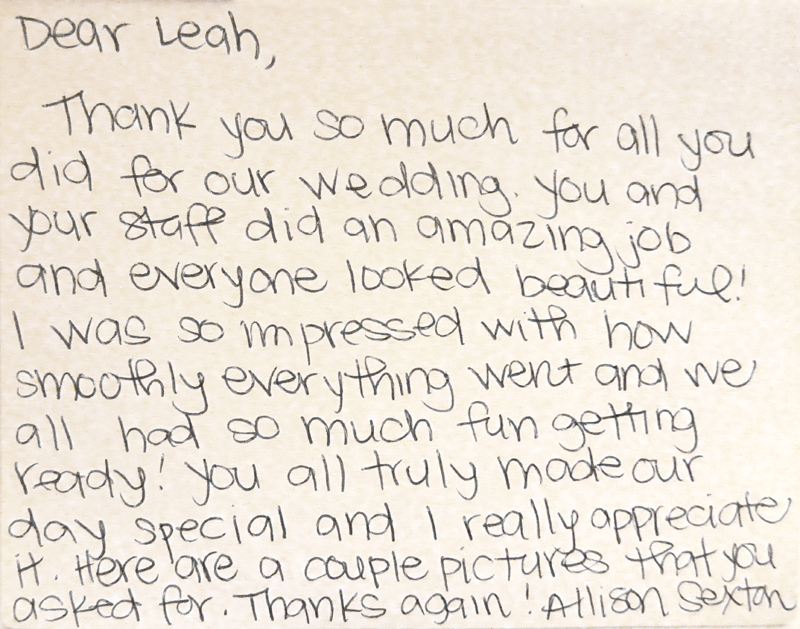 Dear Leah,
Thank you so much for all you
did for our wedding. You and
your staff did an amazing job
and everyone looked beautiful!
I was so impressed with how
smoothly everything went and we
all had so much fun getting
ready! You all truly made our
day special and I really appreciate
it. Here are a couple pictures that you
asked for. Thanks again! Allison Sexton